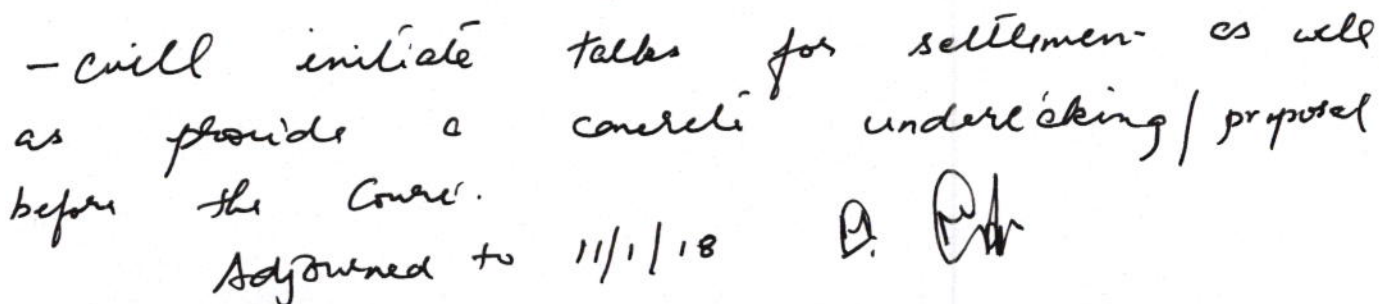 - will initiate talks for settlement as well
as provide a concrete undertaking / proposal
before the Court.
Adjourned to 11/1/18